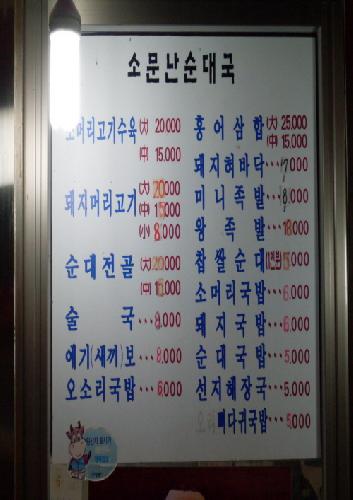 소문난순대국
소머리고기수육 (大) 20,000
(中) 15,000
돼지머리고기 (大) 20,000
(中) 15,000
(小) 8,000
순대전골 (大) 20,000
(中)
술국 ··· 8,000
애기(새끼)보 ··· 8,000
오소리국밥 ··· 6,000
홍어삼합 (大) 25,000
(中) 15,000
돼지혀바닥 ··· 7,000
미니족발 ··· 8,000
왕족발 ··· 18,000
찹쌀순대
소머리국밥 ··· 6,000
돼지국밥 ··· 6,000
순대국밥 ··· 5,000
선지해장국 ··· 5,000
뼈다귀국밥 ··· 5,000